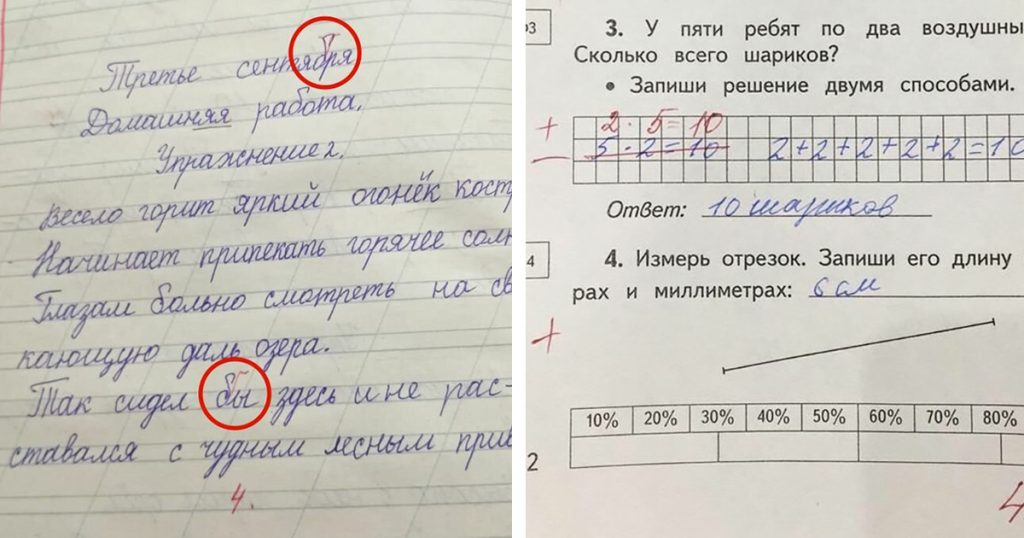 Третье сентября
Домашняя работа.
Упражнение 2.
Весело горит яркий огонёк кост
Начинает припекать горячее солн
Глазам больно смотреть на св
кающую даль озера.
Так сидел бы здесь и не рас-
ставался с чудным лесным прив
4.
3. У пяти ребят по два воздушны
Сколько всего шариков?
• Запиши решение двумя способами.
+ 2 · 5 = 10
− 5 · 2 = 10 2+2+2+2+2=10
Ответ: 10 шариков
4
4. Измерь отрезок. Запиши его длину
рах и миллиметрах: 6 см
+
10% 20% 30% 40% 50% 60% 70% 80%
2
4